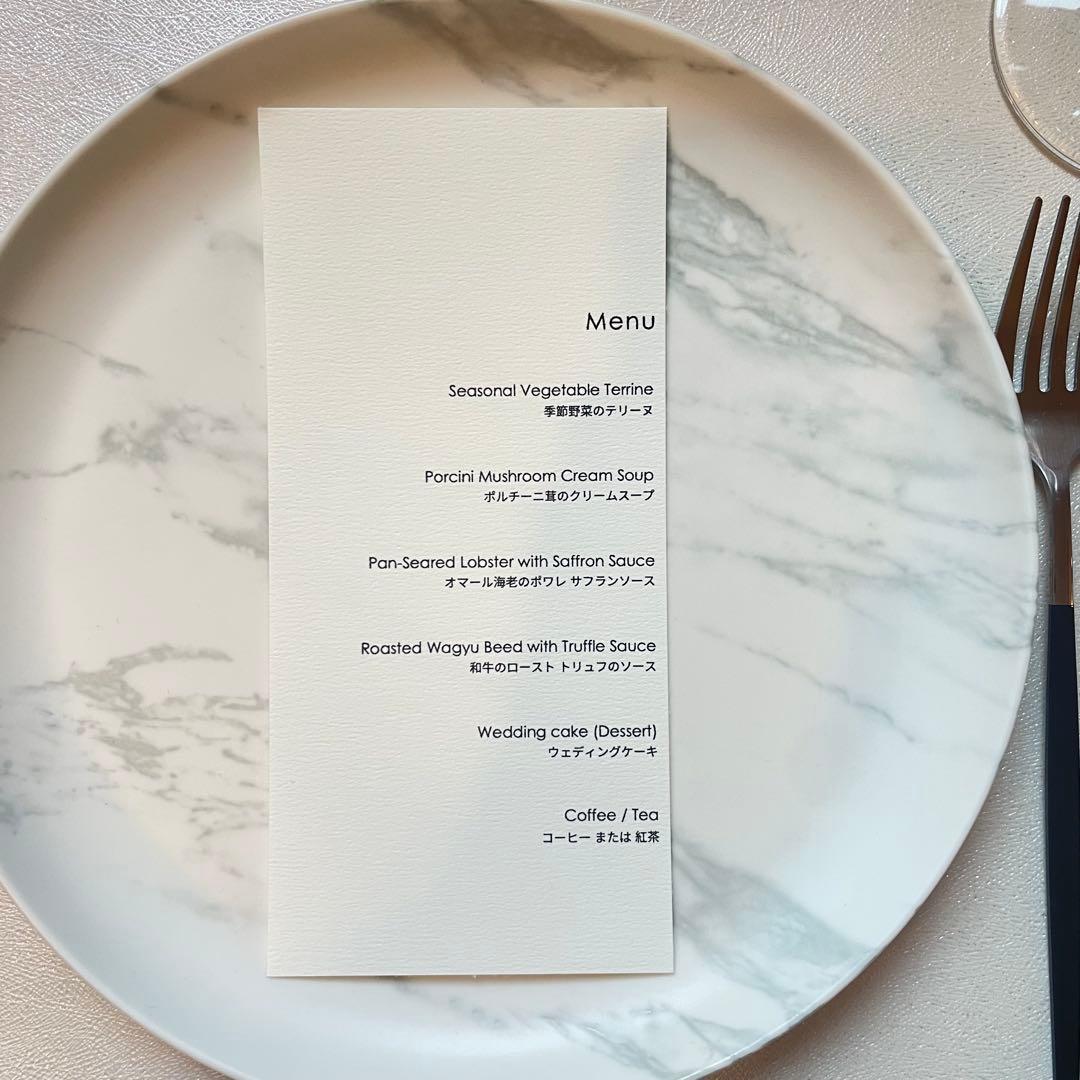 Menu
Seasonal Vegetable Terrine
季節野菜のテリーヌ
Porcini Mushroom Cream Soup
ポルチーニ茸のクリームスープ
Pan-Seared Lobster with Saffron Sauce
オマール海老のポワレ サフランソース
Roasted Wagyu Beed with Truffle Sauce
和牛のロースト トリュフのソース
Wedding cake (Dessert)
ウェディングケーキ
Coffee / Tea
コーヒー または 紅茶